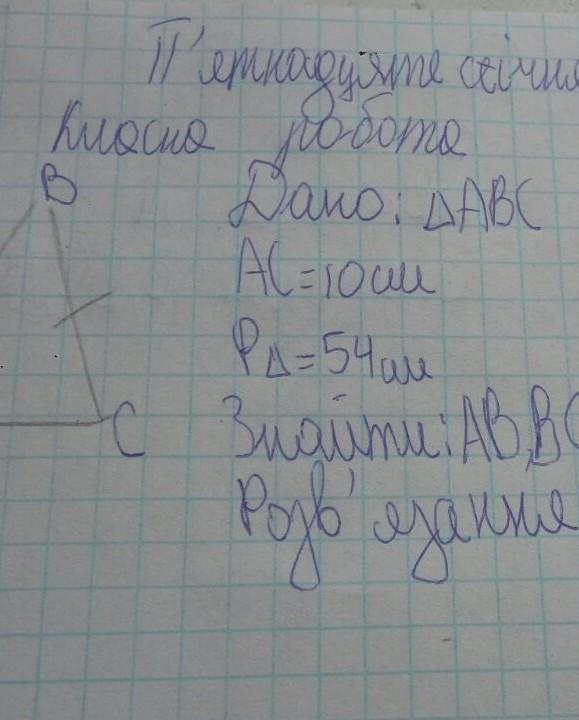 П'ятнадцяте січня
Класна робота
B
Дано: △ABC
AC=10см
P△=54см
C
Знайти: AB, BC
Розв'язання